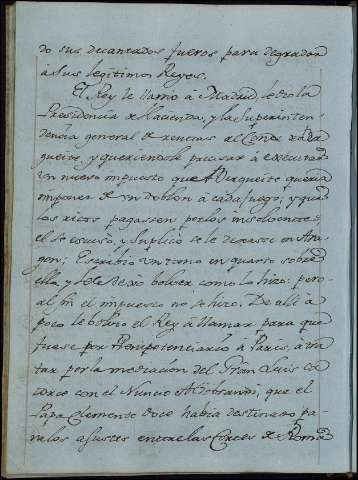 do sus decantados fueros para degradar
à sus legitimos Reyes.
El Rey le llamò à Madrid, le dio la
Presidencia de Hacienda, y la Superinten-
dencia general de rentas al Conde
gueito, y queriendole precisar à executar
un nuevo impuesto que queria
imponer de un doblon à cada fuego; y que
los ricos pagassen por los insolventes,
el se escusò, y suplicò se le dexasse en Ara-
gon; Escribio un tomo en quarto sobre
ella, y se le dexo bolver como lo hizo: pero
al fin el impuesto no se hizo. De alli à
poco le bolvio el Rey à llamar para que
fuese por Plenipotenciario à Paris, à tra-
tar por la mediacion del Gran Luis ca-
torce con el Nuncio Aldobrandi, que el
Papa Clemente doce habia destinado pa-
ra los ajustes entre las Cortes de Roma